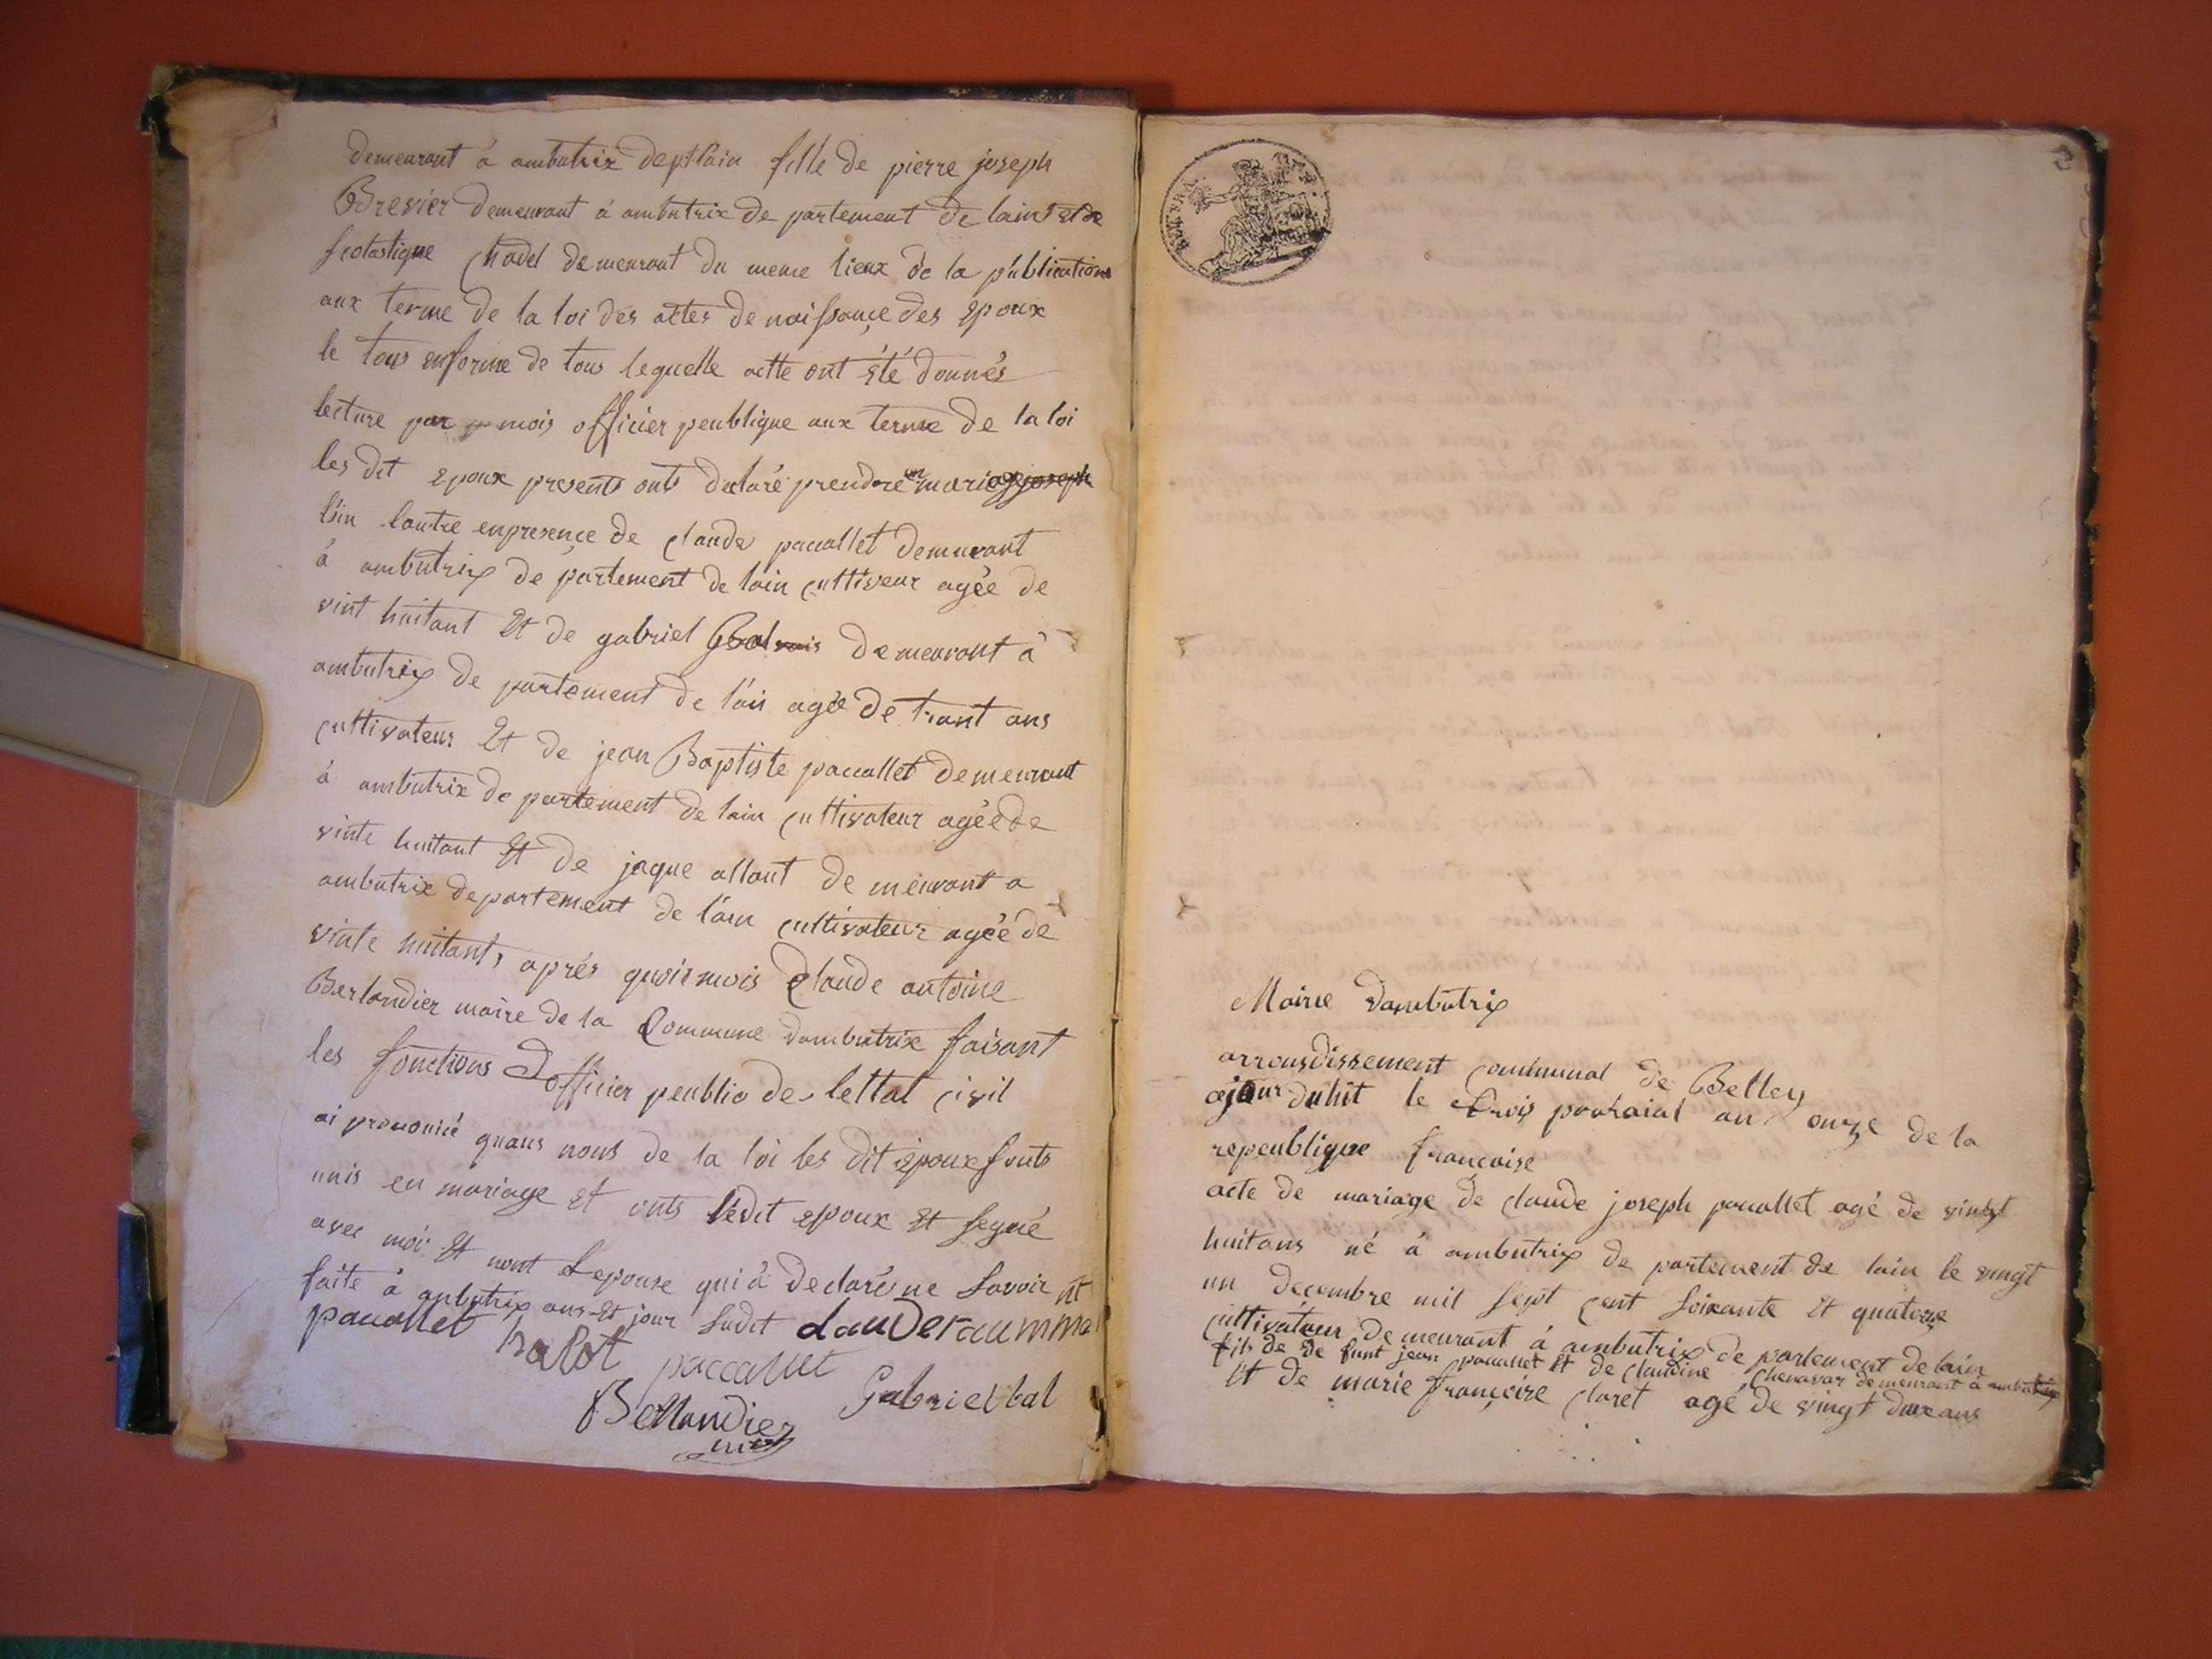 demeurant à ambutrix deptlain fille de pierre joseph
Brevier demeurant à ambutrix de partement de lain et de
scolastique chadel demeurant du meme lieux de la publications
aux terme de la loi des actes de naissançe des epoux
le tous enforme de tous lequelle actte ont été donnés
lecture par mois officier peublique aux terme de la loi
les dit epoux presents onts declaré prendre en mariage joseph
l'in lautre enpresençe de claude pacallet demurant
à ambutrix de partement de lain cultiveur agée de
vint huitant Et de gabriel demeuront à
ambutrix de partement de l'ain agée de trant ans
cultivateur Et de jean Baptiste pacallet demeurant
à ambutrix de partement de lain cultivateur agée de
vinte huitant Et de jaque allant de meurant a
ambutrix departement de l'ain cultivateur agée de
vinte huitants aprés quoi mois Claude antoine
Berlandier maire de la Commune dambutrix faisant
les fonctions Dofficier peublic de lettat civil
ai prononcé quaus nous de la loi les dit époux sonts
unis en mariage et onts lédit epoux Et segné
avec moi Et nont Lepouse qui à declaré ne savoir
faite à anbutrix ans Et jour sudit
pacallet balot paccallet
Gabriel bal
Berlandier
Mairie dambutrix
arrousdissement communal de Belley
ajour duhit le trois prairial an onze de la
repeublique françoise
acte de mariage de claude joseph pacallet agé de vingt
huitans né à ambutrix de partement de lain le vingt
un decembre mil sept cent soixante Et quatorze
cultivateur de meurant à ambutrix de partement de lain
fils de de funt jean pacallet Et de claudine chenavar demeurant à ambutrix
Et de marie françoise claret agé de vingt duxans